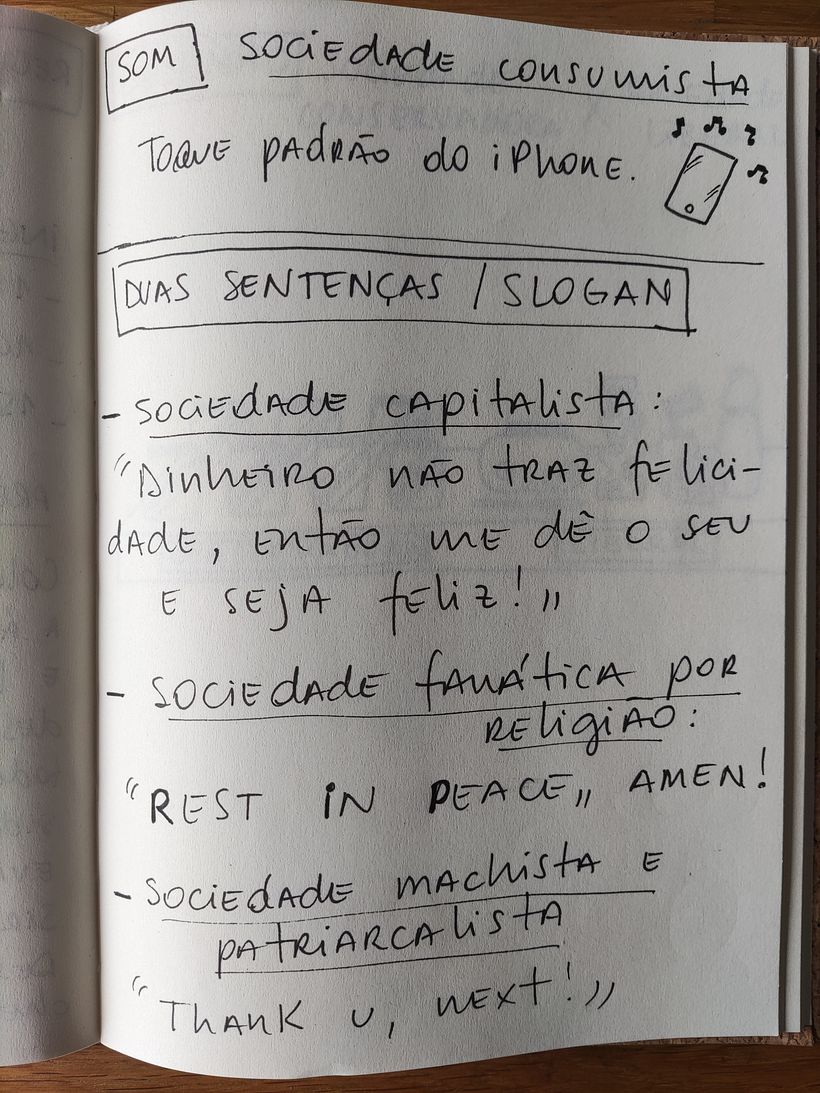 SOM SOCIEDADE CONSUMISTA
TOQUE PADRÃO do iPhone.
DUAS SENTENÇAS / SLOGAN
- SOCIEDADE CAPITALISTA:
"DINHEIRO NÃO TRAZ FELICI-
DADE, ENTÃO ME DÊ O SEU
E SEJA FELIZ!"
- SOCIEDADE FANÁTICA POR
RELIGIAO:
"REST IN PEACE" AMEN!
- SOCIEDADE MACHISTA E
PATRIARCALISTA
"THANK U, NEXT!"